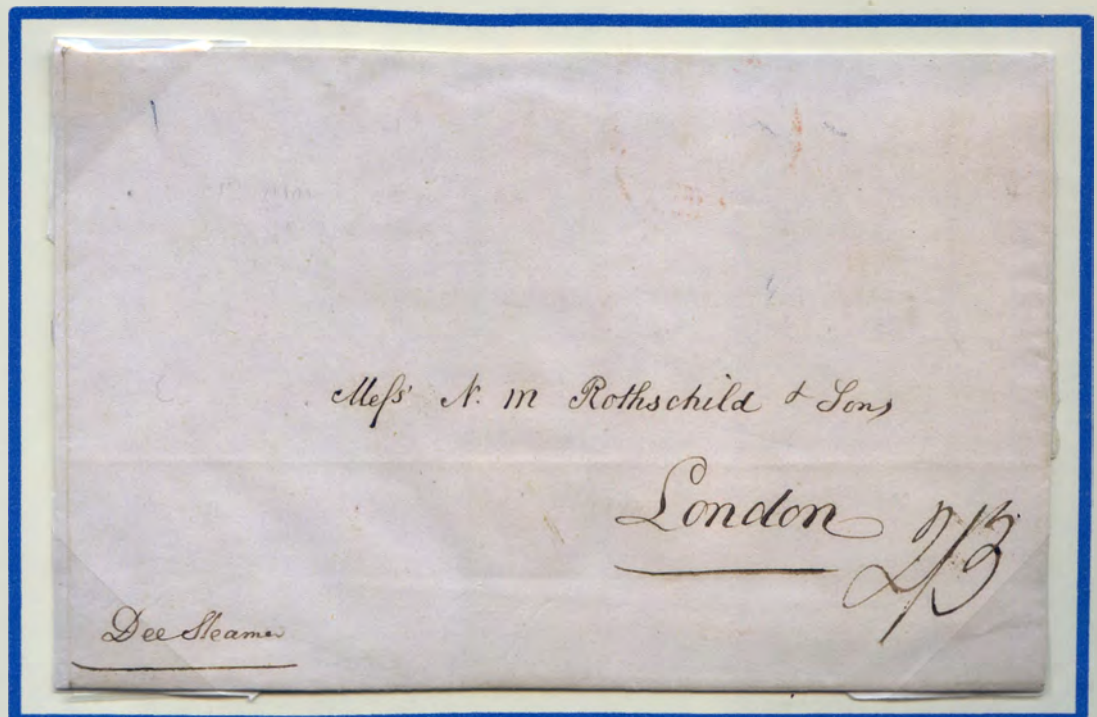 Messʳˢ N. M Rothschild & Sons
London
2/3
Dee Steamer